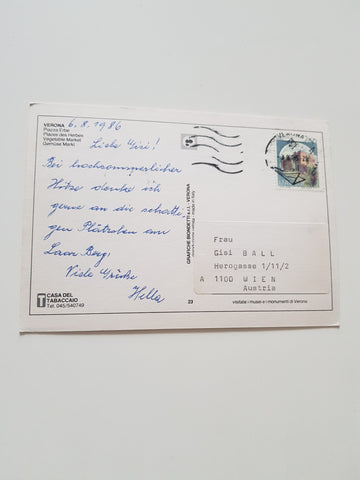 VERONA
Piazza Erbe
Places des Herbes
Vegetable Market
Gemüse Markt
6.8.1986
Liebe Gisi!
Bei hochsommerlicher
Hitze denke ich
gerne an die schatti-
gen Plätzchen am
Laaer Berg!
Viele Grüße
Hella
CASA DEL
TABACCAIO
Tel. 045/540749
GRAFICHE BIONDETTI s.r.l. - VERONA
made in Italy
23
VERONA
Frau
Gisi BALL
Herogasse 1/11/2
A 1100 WIEN
Austria
visitate i musei e i monumenti di Verona